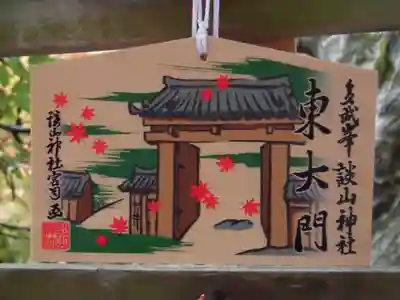 多武峯 談山神社
東大門
談山神社宮司画